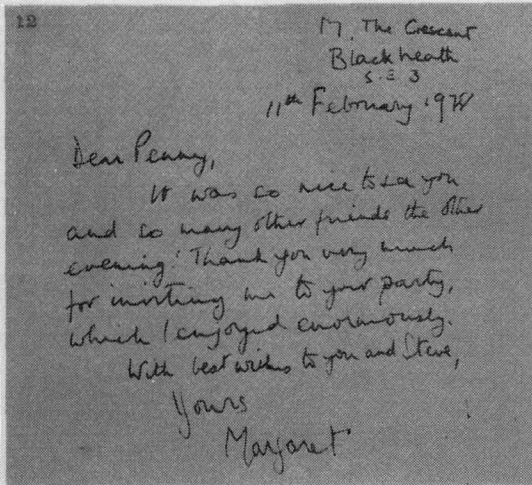 12
M, The Crescent
Blackheath
S.E 3
11th February 1978
Dear Penny,
It was so nice to see you
and so many other friends the other
evening! Thank you very much
for inviting me to your party,
which I enjoyed enormously.
With best wishes to you and Steve,
Yours
Margaret